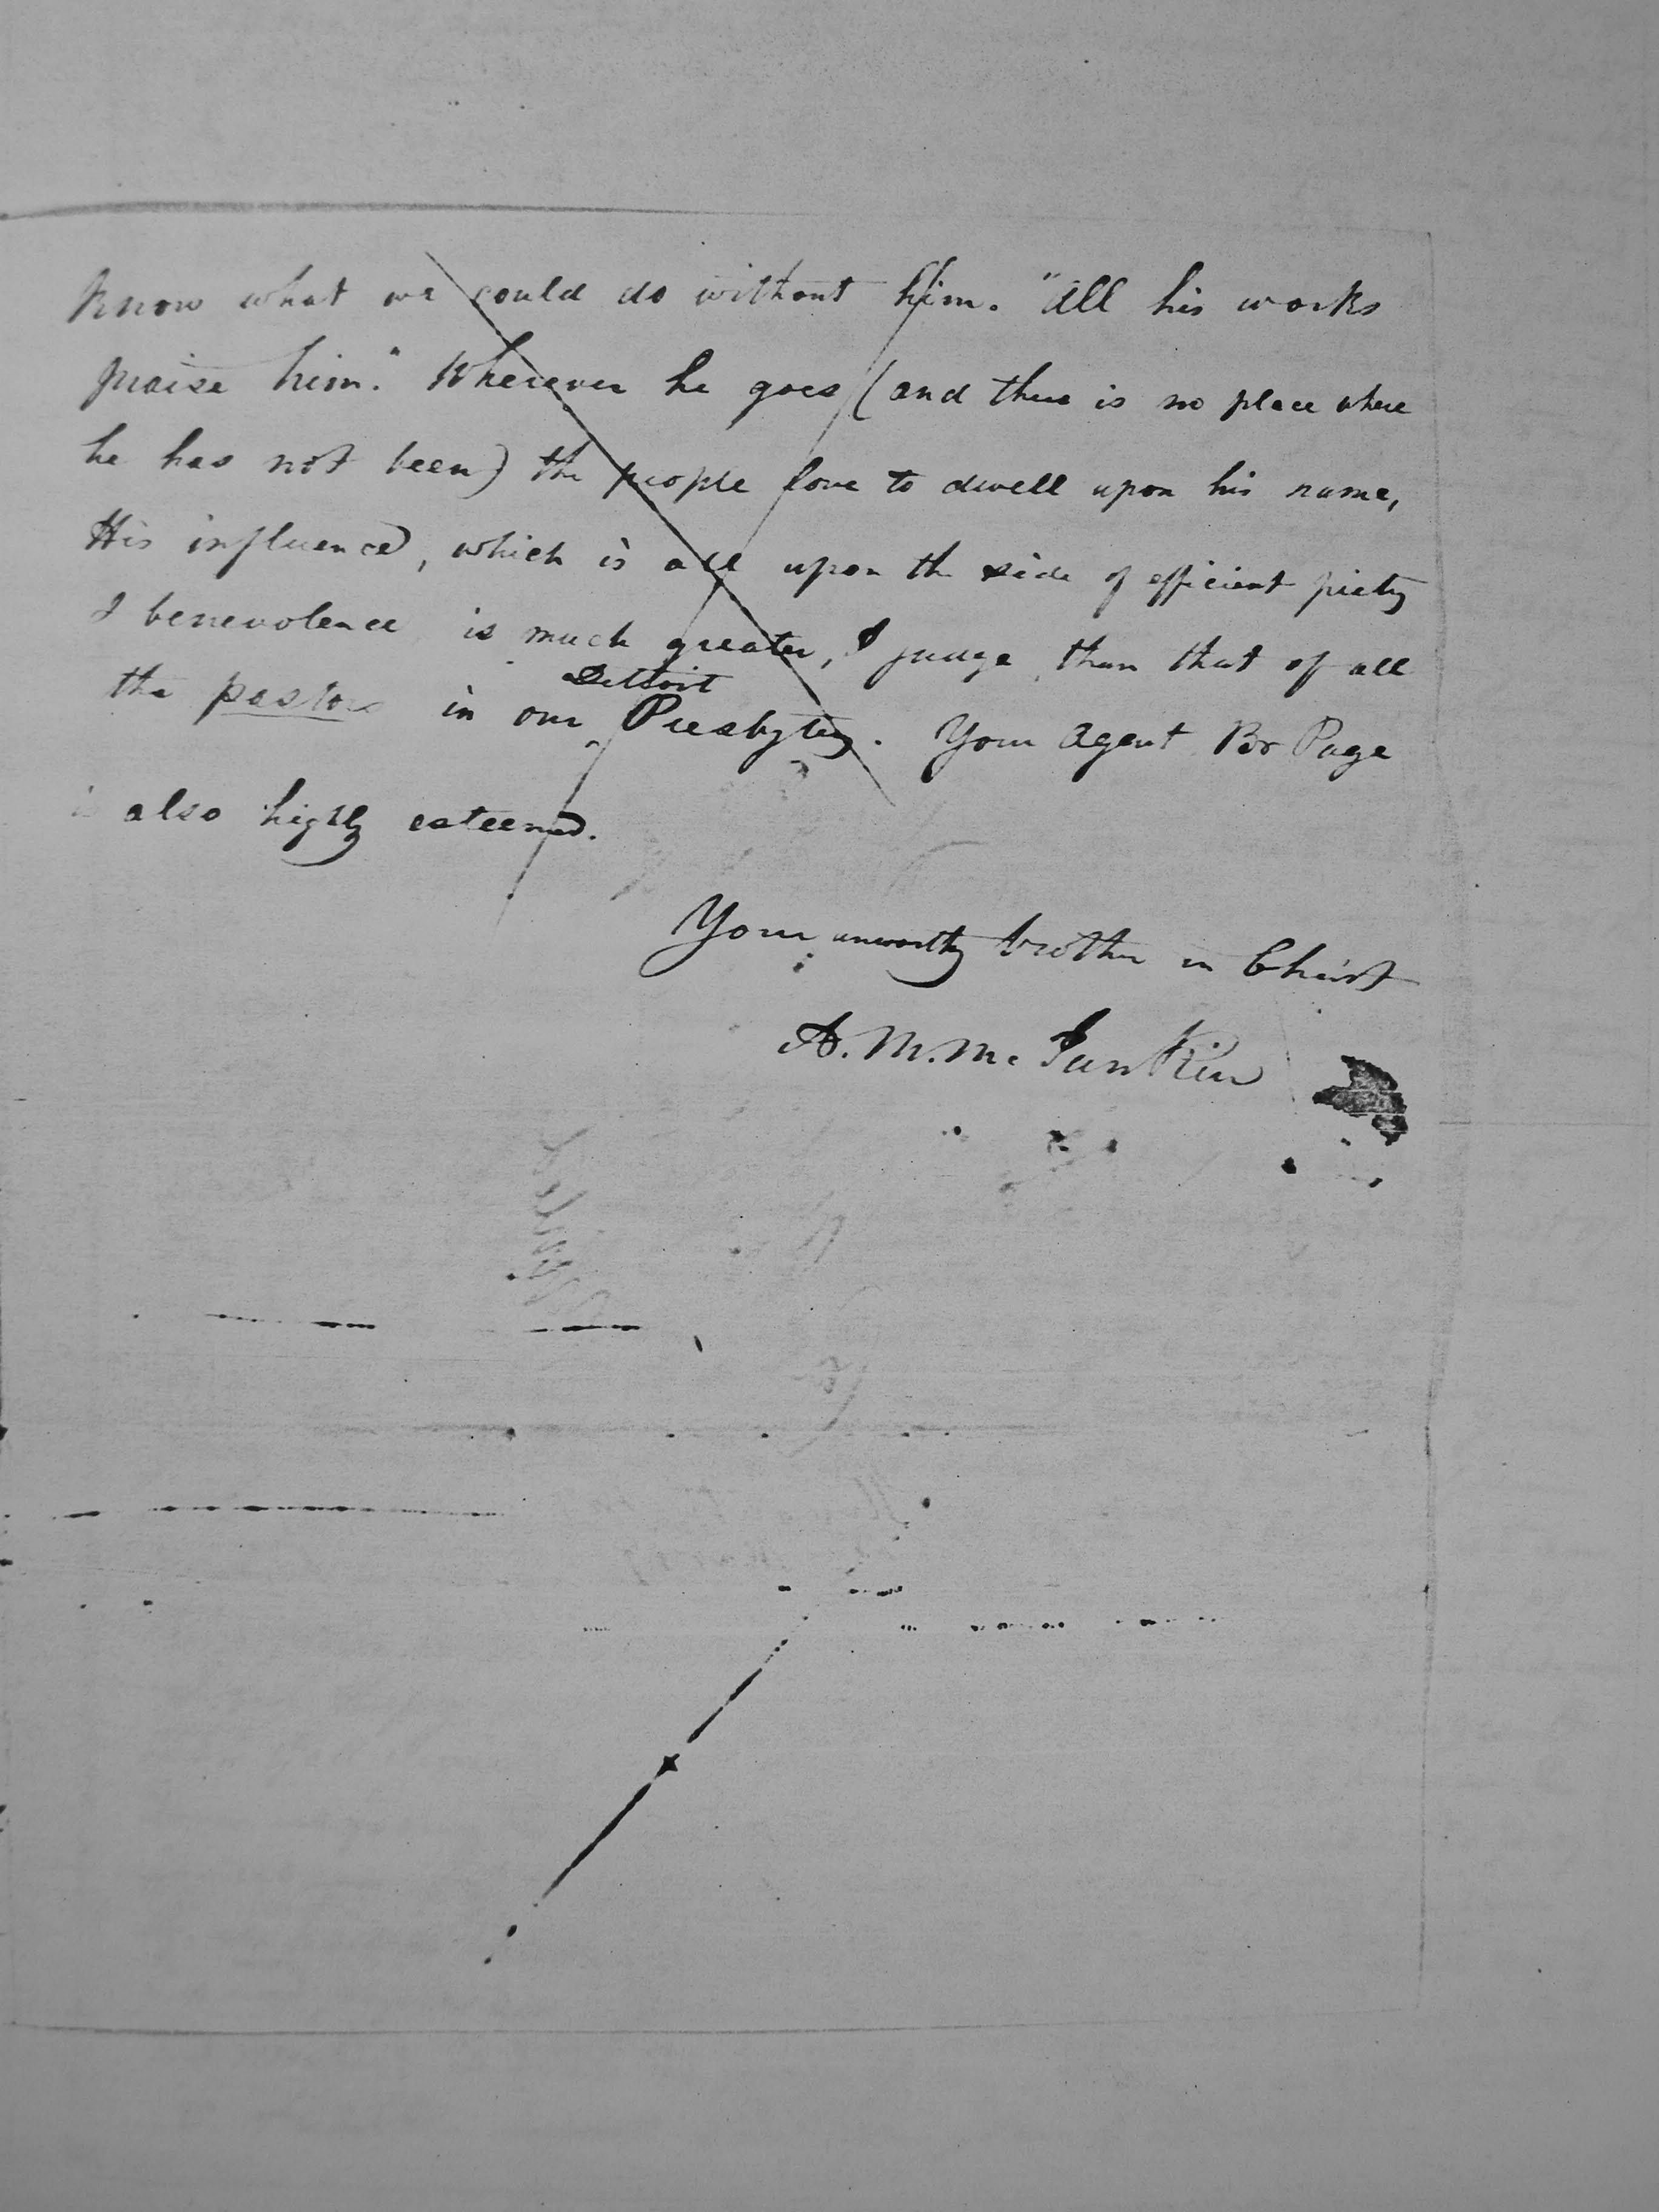 know what we could do without him. "All his works
praise him." Wherever he goes (and there is no place where
he has not been) the people love to dwell upon his name,
His influence, which is all upon the side of efficient piety
& benevolence is much greater, I judge, than that of all
Detroit
the pastors in our Presbytery. Your Agent Br Page
is also highly esteemed.
Your unworthy brother in Christ
A. M. Mc Junkin